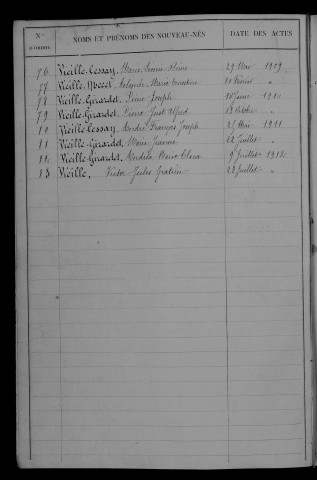 Nos D'ORDRE NOMS ET PRÉNOMS DES NOUVEAU-NÉS DATE DES ACTES
76 Vieille-Tessay, Marie Louise 29 Mai 1909
77 Vieille-Mecet, Marie
78 Vieille-Girardet, Pierre Joseph 1910
79 Vieille-Girardet, Pierre Just Alfred 18 Octobre "
10 Vieille-Tessay, André François Joseph 25 Mai 1911
11 Vieille-Girardet, Marie Jeanne 12 Juillet "
12 Vieille-Girardet, Marie Clara 9 Juillet 1912
13 Vieille, Victor Jules Gratien 22 Juillet "